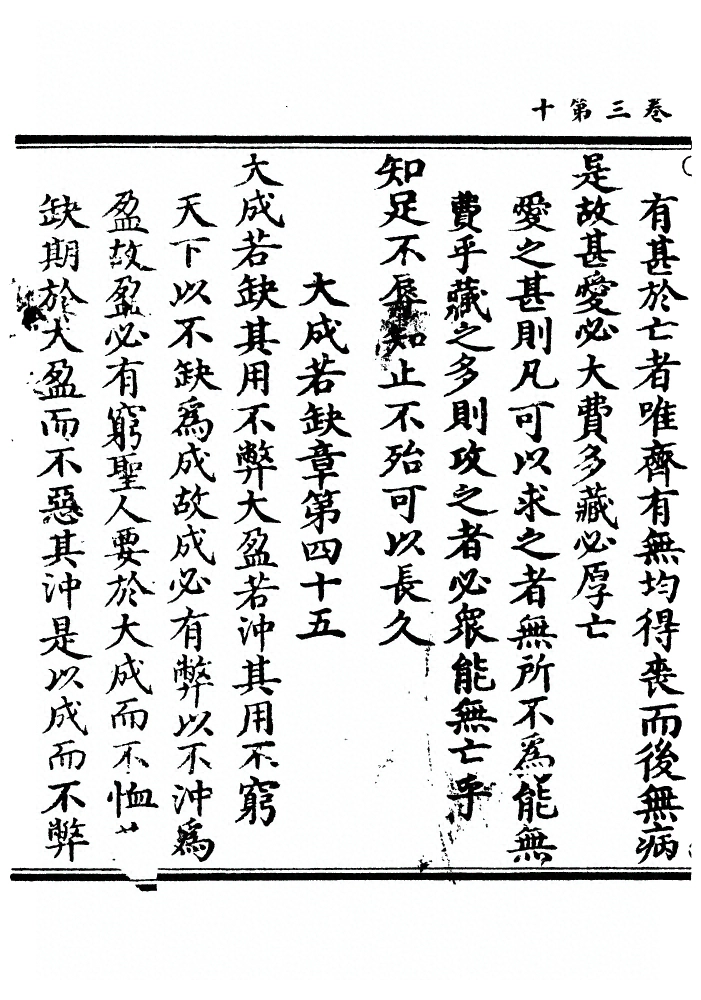 卷三第十
有甚於亡者唯齊有無均得喪而後無病
是故甚愛必大費多藏必厚亡
愛之甚則凡可以求之者無所不為能無
費乎藏之多則攻之者必衆能無亡乎
知足不辱知止不殆可以長久
大成若缺章第四十五
大成若缺其用不弊大盈若沖其用不窮
天下以不缺爲成故成必有弊以不沖爲
盈故盈必有窮聖人要於大成而不恤
缺期於大盈而不惡其沖是以成而不弊